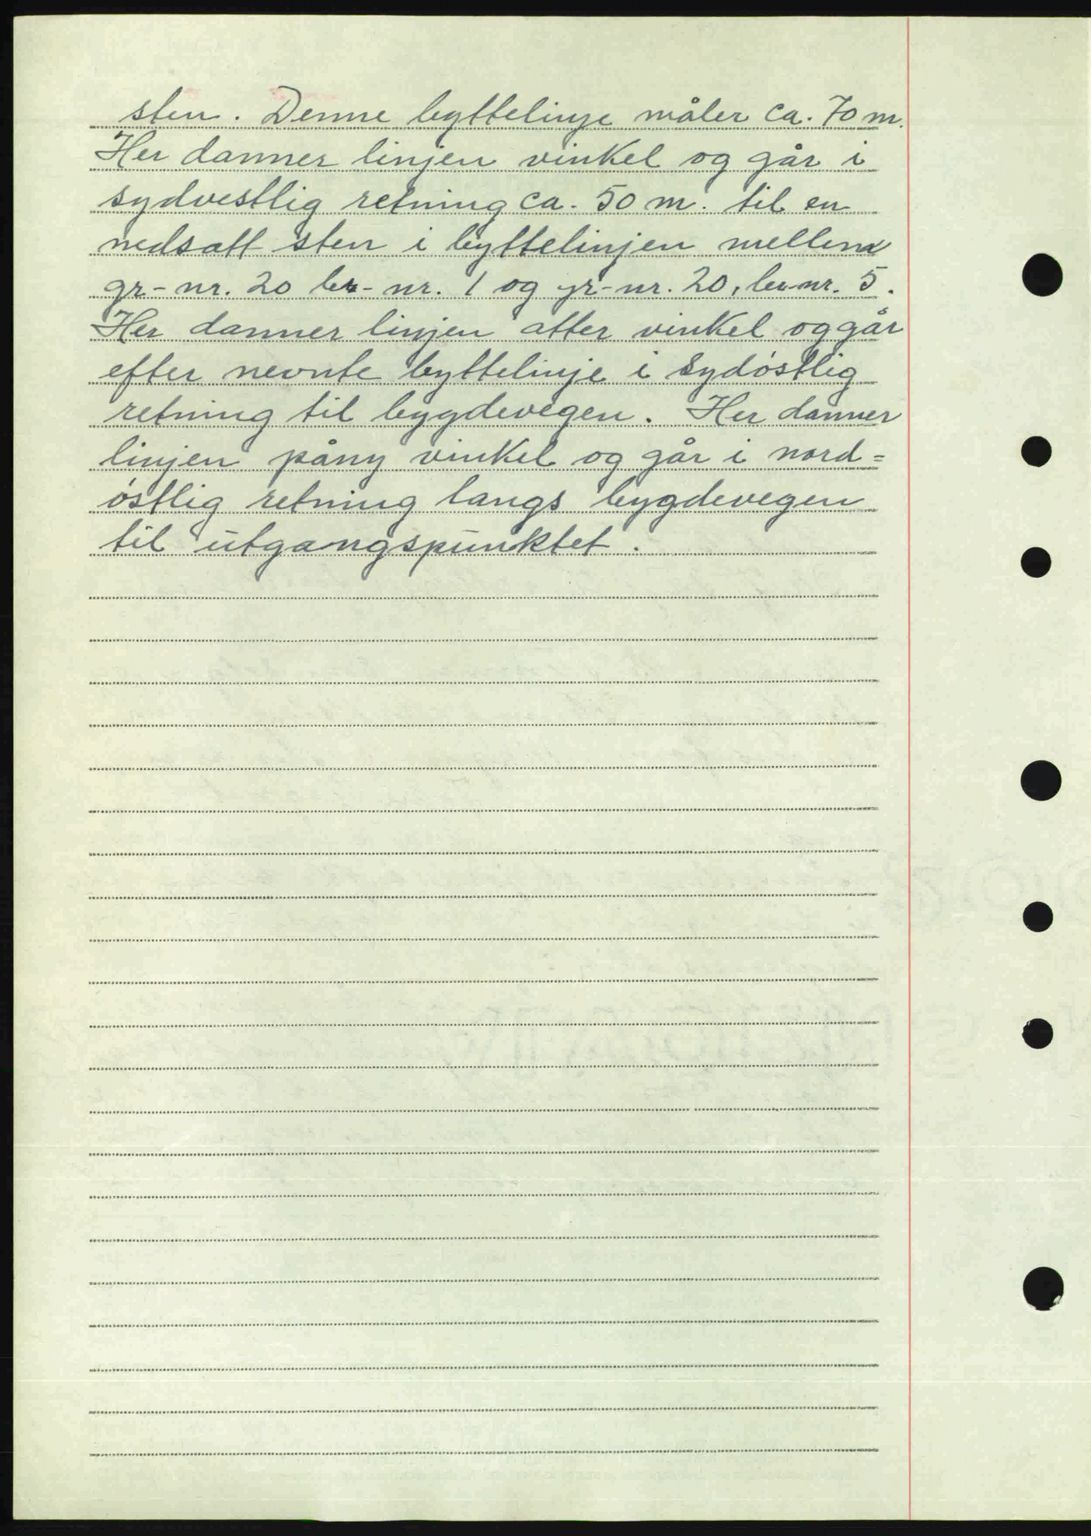 sten. Denne byttelinje måler ca. 70 m.
Her danner linjen vinkel og går i
sydvestlig retning ca. 50 m. til en
nedsatt sten i byttelinjen mellem
gr-nr. 20 br-nr. 1 og gr-nr. 20, br-nr. 5.
Her danner linjen atter vinkel og går
efter nevnte byttelinje i sydöstlig
retning til bygdevegen. Her danner
linjen påny vinkel og går i nord=
östlig retning langs bygdevegen
til utgangspunktet.